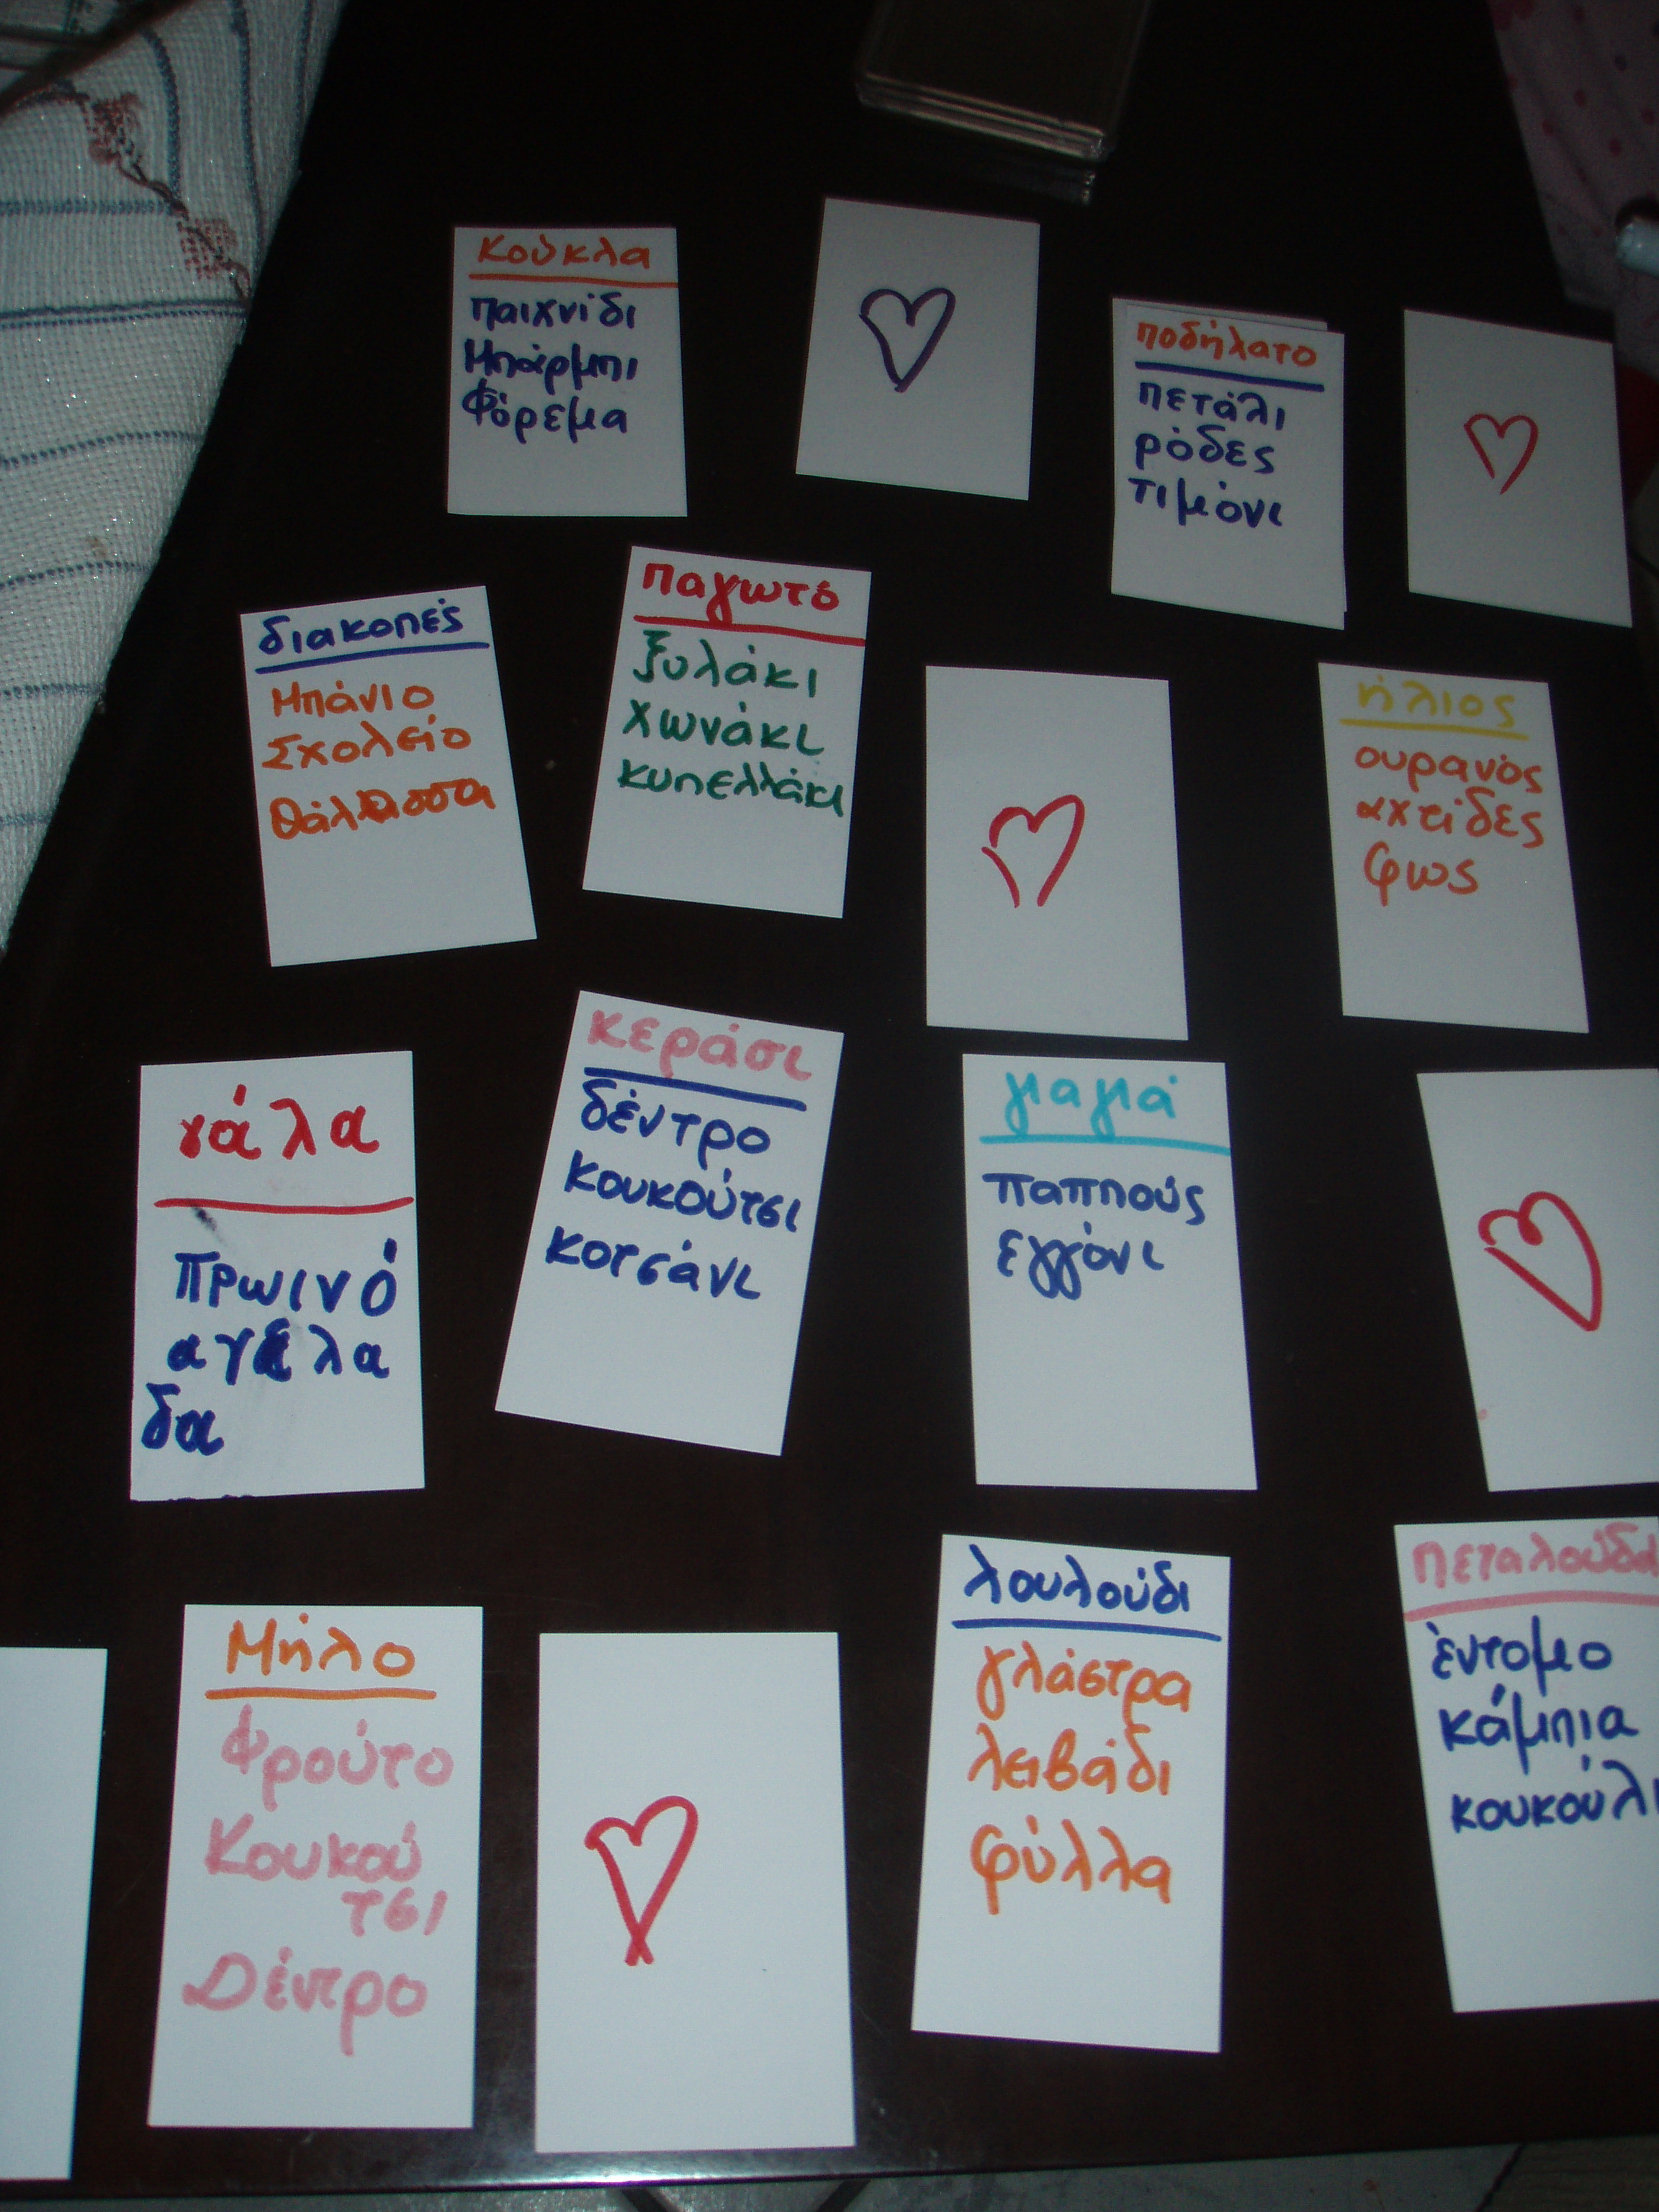 κούκλα
παιχνίδι
Μπάρμπι
Φόρεμα
ποδήλατο
πετάλι
ρόδες
τιμόνι
διακοπές
Μπάνιο
Σχολείο
Θάλασσα
παγωτό
ξυλάκι
χωνάκι
κυπελλάκι
ήλιος
ουρανός
αχτίδες
φως
γάλα
πρωινό
αγελα
δα
κεράσι
δέντρο
κουκούτσι
κοτσάνι
γιαγιά
παππούς
εγγόνι
Μήλο
Φρούτο
Κουκού
τσι
Δέντρο
λουλούδι
γλάστρα
λειβάδι
φύλλα
πεταλούδα
έντομο
κάμπια
κουκούλι